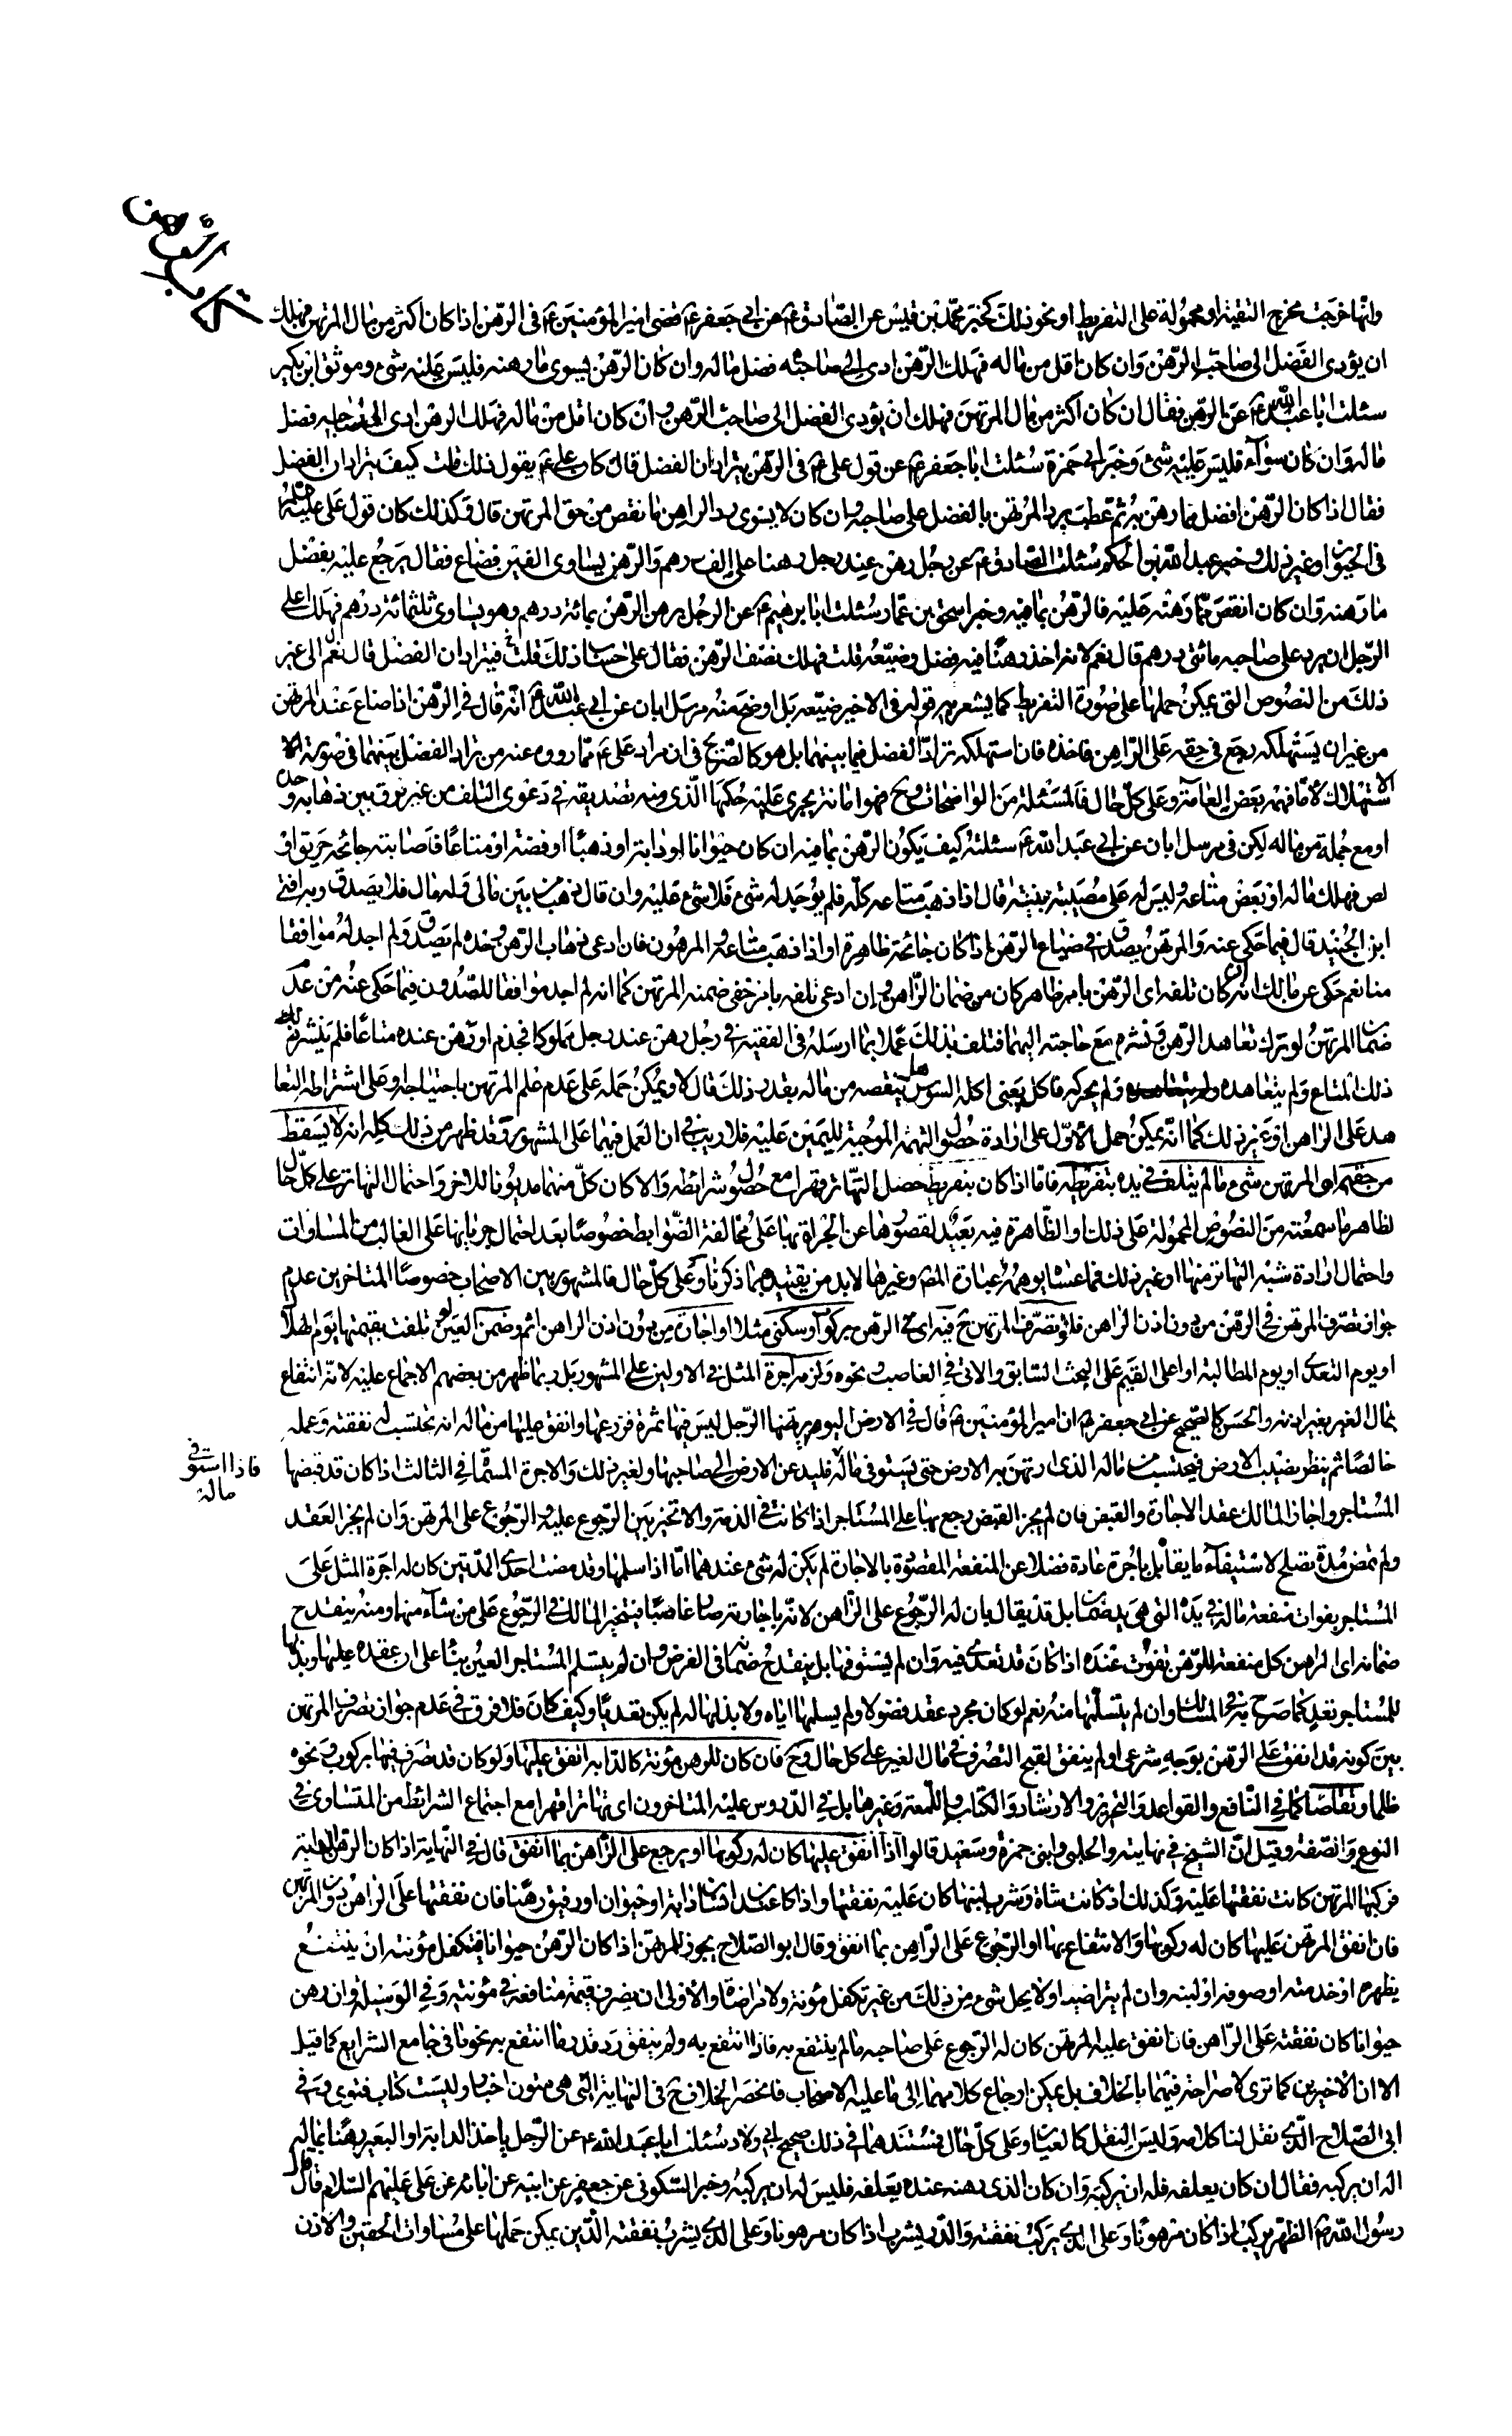 كتاب الرهن
وانها خرجت مخرج التقية او محمولة على التفريط او نحو ذلك كخبر محمد بن قيس عن الصادق ع عن ابي جعفر ع قضى امير المؤمنين ع في الرهن اذا كان اكثر من مال المرتهن فهلك
ان يؤدي الفضل الى صاحب الرهن وان كان اقل من ماله فهلك الرهن ادى الى صاحبه فضل ماله وان كان الرهن يسوى ما رهنه فليس عليه شيء وموثق ابن بكير
سئلت ابا عبد الله ع عن الرهن فقال ان كان اكثر من مال المرتهن فهلك ان يؤدي الفضل الى صاحب الرهن وان كان اقل من ماله فهلك الرهن ادى الى صاحبه فضل
ماله وان كان سوآء فليس عليه شئ وخبر ابي حمزة سئلت ابا جعفر ع عن قول علي ع في الرهن يترادان الفضل قال كان علي ع يقول ذلك قلت كيف يترادان الفضل
فقال اذا كان الرهن افضل مما رهن به ثم عطب رد المرتهن بالفضل على صاحبه وان كان لا يسوى رد الراهن ما نقص من حق المرتهن قال وكذلك كان قول علي عليه السلام
في الحيوان وغير ذلك وخبر عبد الله بن الحكم سئلت الصادق ع عن رجل رهن عند رجل رهنا على الف درهم والرهن يساوي الفين فضاع فقال يرجع عليه بفضل
ما رهنه وان كان انقص مما رهنه عليه فالرهن بما فيه وخبر اسحق بن عمار سئلت ابا ابرهيم ع عن الرجل يرهن الرهن بمائة درهم وهو يساوي ثلثمائة درهم فهلك اعلى
الرجل ان يرد على صاحبه مائتي درهم قال نعم لانه اخذ رهنا فيه فضل وضيعه قلت فهلك نصف الرهن فقال على حساب ذلك قلت فيترادان الفضل قال نعم الى غير
ذلك من النصوص التي يمكن حملها على صورة التفريط كما يشعر به قوله في الاخير ضيعه بل اوضح منه مرسل ابان عن ابي عبد الله ع انه قال في الرهن اذا ضاع عند المرتهن
من غير ان يستهلكه رجع في حقه على الراهن فاخذه فان استهلكه ترادا الفضل فيما بينهما بل هو كالصريح في ان مراد علي ع مما رووه عنه من تراد الفضل بينهما في صورة
الاستهلاك لا ما فهمه بعض العامة وعلى كل حال فالمسئلة من الواضحات وح فهو امانة يجري عليه حكمها الذي منه تصديقه في دعوى التلف من غير فرق بين ذهابه وحده
او مع جملة من ماله لكن في مرسل ابان عن ابي عبد الله ع سئلته كيف يكون الرهن بما فيه ان كان حيوانا او دابة او ذهبا او فضة او متاعا فاصابته جائحة حريق او
لص فهلك ماله او بعض متاعه وليس له على مصيبته بينة قال اذا ذهب متاعه كله فلم يوجد له شيء فلا شيء عليه وان قال ذهب من بين مالي وله مال فلا يصدق وبه افتى
ابن الجنيد قال فيما حكي عنه والمرتهن يصدق في ضياع الرهن اذا كان جائحة ظاهرة او اذا ذهب متاعه والمرهون فان ادعى ذهاب الرهن وحده لم يصدق ولم اجد له موافقا
منا نعم حكي عن مالك انه ان كان تلفه اي الرهن بامر ظاهر كان من ضمان الراهن وان ادعى تلفه بامر خفي ضمنه المرتهن كما انه لم اجد موافقا للصدوق فيما حكي عنه من عدم
ضمان المرتهن لو ترك تعاهد الرهن ونشره مع حاجته اليهما فتلف بذلك عملا بما ارسله في الفقيه في رجل رهن عند رجل مملوكا فجذم او رهن عنده متاعا فلم ينشر
ذلك المتاع ولم يتعاهده ولم يحركه فاكل يعني اكله السوس هل ينقصه من ماله بقدر ذلك قال لا ويمكن حمله على عدم علم المرتهن باحتياجه وعلى اشتراطه التعا
هد على الراهن او غير ذلك كما انه يمكن حمل الاول على ارادة حصول التهمة الموجبة لليمين عليه فلا ريب في ان العمل فيهما على المشهور وقد ظهر من ذلك كله انه لا يسقط
من حقه اي المرتهن شيء ما لم يتلف في يده بتفريطه فاما اذا كان بتفريط حصل التهاتر قهرا مع حصول شرائطه والا كان كل منهما مديونا للاخر واحتمال التهاتر على كل حال
لظاهر ما سمعته من النصوص المحمولة على ذلك او الظاهرة فيه بعيد لقصورها عن الجرأة بها على مخالفة الضوابط خصوصا بعد احتمال جريانها على الغالب من المساوات
واحتمال ارادة شبه التهاتر منها او غير ذلك فما عساه يوهمه عبارة المص وغيرها لا بد من تقييده بما ذكرنا وعلى كل حال فالمشهور بين الاصحاب خصوصا المتاخرين عدم
جواز تصرف المرتهن في الرهن من دون اذن الراهن فلو تصرف المرتهن ح فيه اي في الرهن بركوب او سكنى مثلا او اجارة من دون اذن الراهن اثم وضمن العين لو تلفت بقيمتها يوم
او يوم التعدي او يوم المطالبة او اعلى القيم على البحث السابق والآتي في الغاصب ونحوه ولزمه اجرة المثل في الاولين على المشهور بل ربما ظهر من بعضهم الاجماع عليه لانه انتفاع
بمال الغير بغير اذنه والحسن كالصحيح عن ابي جعفر ع ان امير المؤمنين ع قال في الارض البور يرتهنها الرجل ليس فيها ثمرة فزرعها وانفق عليها من ماله انه يحتسب له نفقته وعمله
خالصا ثم ينظر نصيب الارض فيحتسب من ماله الذي ارتهن به الارض حتى يستوفي ماله فليدفع الارض الى صاحبها ولغير ذلك والاجرة المسماة في الثالث اذا كان قد قبضها
فاذا استوفى
ماله
المستاجر واجاز المالك عقد الاجارة والقبض فان لم يجز القبض رجع بها على المستاجر اذا كانت في الذمة والا تخير بين الرجوع عليه والرجوع على المرتهن وان لم يجز العقد
ولم تمض مدة تصلح لاستيفآء ما يقابل باجرة عادة فضلا عن المنفعة المقصودة بالاجارة لم يكن له شيء عندهما اما اذا سلمها وقد مضت احدى المدتين كان له اجرة المثل على
المستاجر بفوات منفعة ماله في يده التي هي يد ضمان بل قد يقال بان له الرجوع على الراهن لانه باجارته صار غاصبا فيتخير المالك في الرجوع على من شآء منهما ومنه ينقدح
ضمانه اي الراهن كل منفعة للرهن تفوت عنده اذا كان قد تعدى فيه وان لم يستوفها بل ينقدح ضمانه في الفرض وان لم يتسلم المستاجر العين بناء على ان عقده عليها وبذلها
للمستاجر تعد كما صرح به في المسالك وان لم يتسلمها منه نعم لو كان مجرد عقد فضولا ولم يسلمها اياه ولا بذلها له لم يكن تعديا وكيف كان فلا فرق في عدم جواز تصرف المرتهن
بين كونه قد انفق على الرهن بوجه شرعي او لم ينفق لقبح التصرف في مال الغير على كل حال وح فان كان للرهن مؤنة كالدابة انفق عليها ولو كان قد تصرف فيها بركوب ونحوه
ظلما وتقاصا كما في النافع والقواعد والتحرير والارشاد والكتاب واللمعة وغيرها بل في الدروس عليه المتاخرون اي تهاترا قهرا مع اجتماع الشرائط من التساوي في
النوع والصفة وقيل ان الشيخ في نهايته والحلبي وابني حمزة وسعيد قالوا اذا انفق عليها كان له ركوبها او يرجع على الراهن بما انفق قال في النهاية اذا كان الرهن دابة
فركبها المرتهن كانت نفقتها عليه وكذلك اذ كانت شاة وشرب لبنها كان عليه نفقتها واذا كان عند انسان دابة او حيوان او رقيق رهنا فان نفقتها على الراهن دون المرتهن
فان انفق المرتهن عليها كان له ركوبها والانتفاع بها او الرجوع على الراهن بما انفق وقال ابو الصلاح يجوز للمرتهن اذا كان الرهن حيوانا فتكفل مؤنته ان ينتفع
بظهره او خدمته او صوفه او لبنه وان لم يتراضيا ولا يحل شيء من ذلك من غير تكفل مؤنة ولا مراضاة والاولى ان يصرف قيمة منافعه في مؤنته وفي الوسيلة وان رهن
حيوانا كان نفقته على الراهن فان انفق عليه المرتهن كان له الرجوع على صاحبه ما لم ينتفع به فاذا انتفع به ولم ينفق رد قدر ما انتفع به ونحوها في جامع الشرايع كما قيل
الا ان الاخيرين كما ترى لا صراحة فيهما بالخلاف بل يمكن ارجاع كلامهما الى ما عليه الاصحاب فانحصر الخلاف ح في النهاية التي هي متون اخبار وليست كتاب فتوى وفي
ابي الصلاح الذي نقل لنا كلامه وليس النقل كالعيان وعلى كل حال فمستندهما في ذلك صحيح ابي ولاد سئلت ابا عبد الله ع عن الرجل ياخذ الدابة او البعير رهنا بماله
اله ان يركبه فقال ان كان يعلفه فله ان يركبه وان كان الذي رهنه عنده يعلفه فليس له ان يركبه وخبر السكوني عن جعفر عن ابيه عن ابائه عن علي عليهم السلام قال قال
رسول الله ص الظهر يركب اذا كان مرهونا وعلى الذي يركب نفقته والدر يشرب اذا كان مرهونا وعلى الذي يشرب نفقته الذين يمكن حملها على مساواة الحقين والاذن